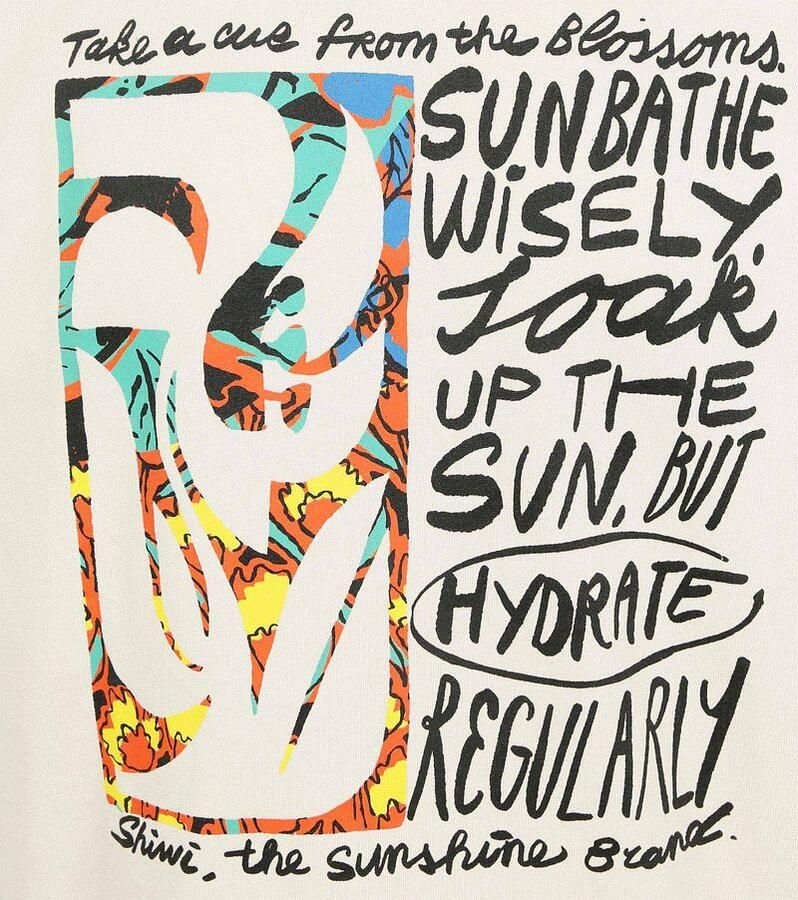 Take a cue from the Blossoms.
SUNBATHE
WiSELY.
Soak
UP THE
SUN, BUT
HYDRATE
REGULARLY
Shiwi, the sunshine Brand.